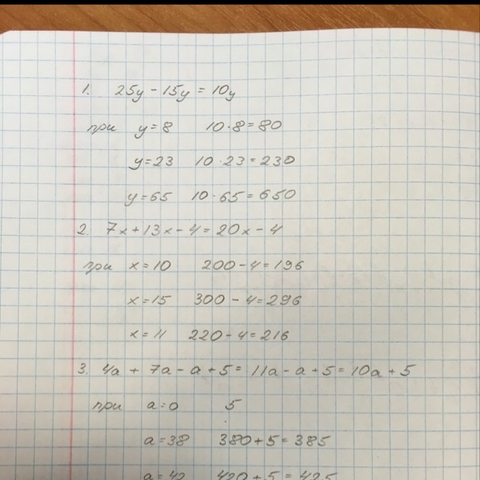 1. 25y - 15y = 10y
при y=8 10·8=80
y=23 10·23=230
y=65 10·65=650
2. 7x+13x-4=20x-4
при x=10 200-4=196
x=15 300-4=296
x=11 220-4=216
3. 4a + 7a - a + 5 = 11a - a + 5 = 10a + 5
при a=0 5
a=38 380+5=385
a=42 420+5=425